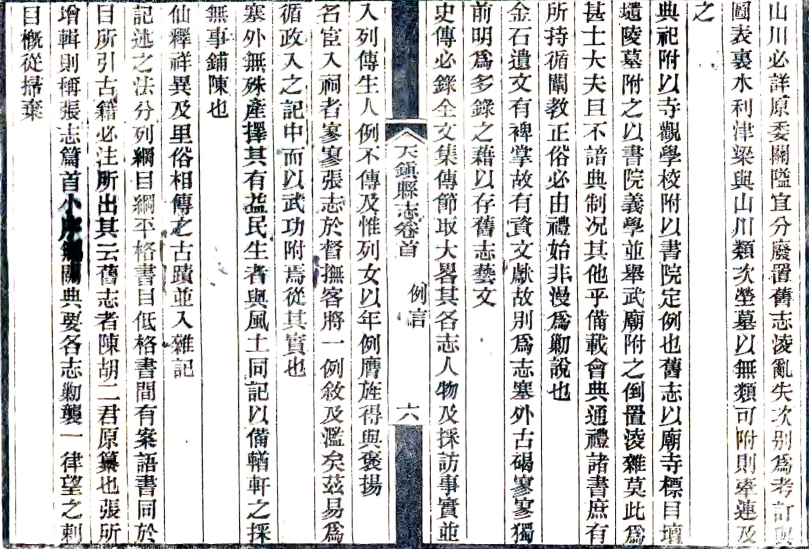 山川必詳原委關隘宜分廢置舊志凌亂失次别爲考訂與
圖表裏水利津梁與山川類次塋墓以無類可附則牽連及
之
典祀附以寺觀學校附以書院定例也舊志以廟寺標目壇
壝陵墓附之以書院義學並舉武廟附之倒置淩雜莫此爲
甚士大夫且不諳典制况其他乎備載會典通禮諸書庶有
所持循闡教正俗必由禮始非漫爲勦說也
金石遺文有裨掌故有資文獻故别爲志塞外古碣寥寥獨
前明爲多錄之藉以存舊志藝文
史傳必錄全文集傳節取大畧其各志人物及採訪事實並
天鎮縣志卷首 例言 六
入列傳生人例不傳及惟列女以年例膺旌得與褒揚
名宦入祠者寥寥張志於督撫客將一例敘及濫矣茲易爲
循政入之記中而以武功附焉從其實也
塞外無殊產擇其有益民生者與風土同記以備輶軒之採
無事鋪陳也
仙釋祥異及里俗相傳之古蹟並入雜記
記述之法分列綱目綱平格書目低格書間有案語書同於
目所引古籍必注所出其云舊志者陳胡二君原纂也張所
增輯則稱張志篇首小序無關典要各志勦襲一律望之剌
目概從掃棄